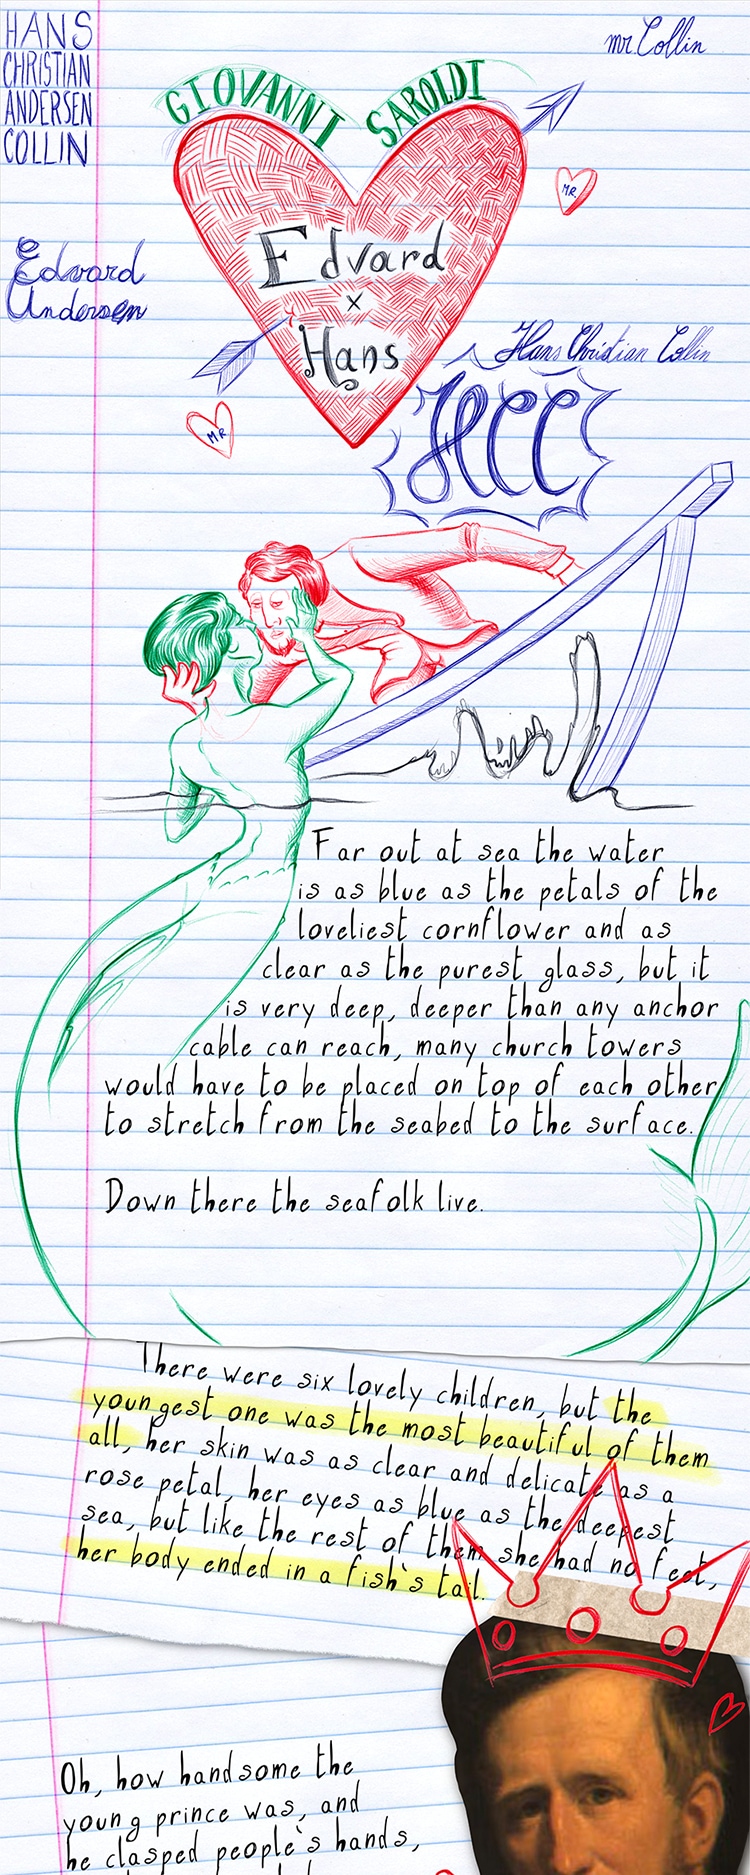 HANS
CHRISTIAN
ANDERSEN
COLLIN
mr. Collin
GIOVANNI SAROLDI
MR
Edvard
x
Hans
Edvard
Andersen
Hans Christian Collin
HCC
MR
Far out at sea the water
is as blue as the petals of the
loveliest cornflower and as
clear as the purest glass, but it
is very deep, deeper than any anchor
cable can reach, many church towers
would have to be placed on top of each other
to stretch from the seabed to the surface.
Down there the seafolk live.
There were six lovely children, but the
youngest one was the most beautiful of them
all, her skin was as clear and delicate as a
rose petal, her eyes as blue as the deepest
sea, but like the rest of them she had no feet,
her body ended in a fish`s tail.
Oh, how handsome the
young prince was, and
he clasped people`s hands,